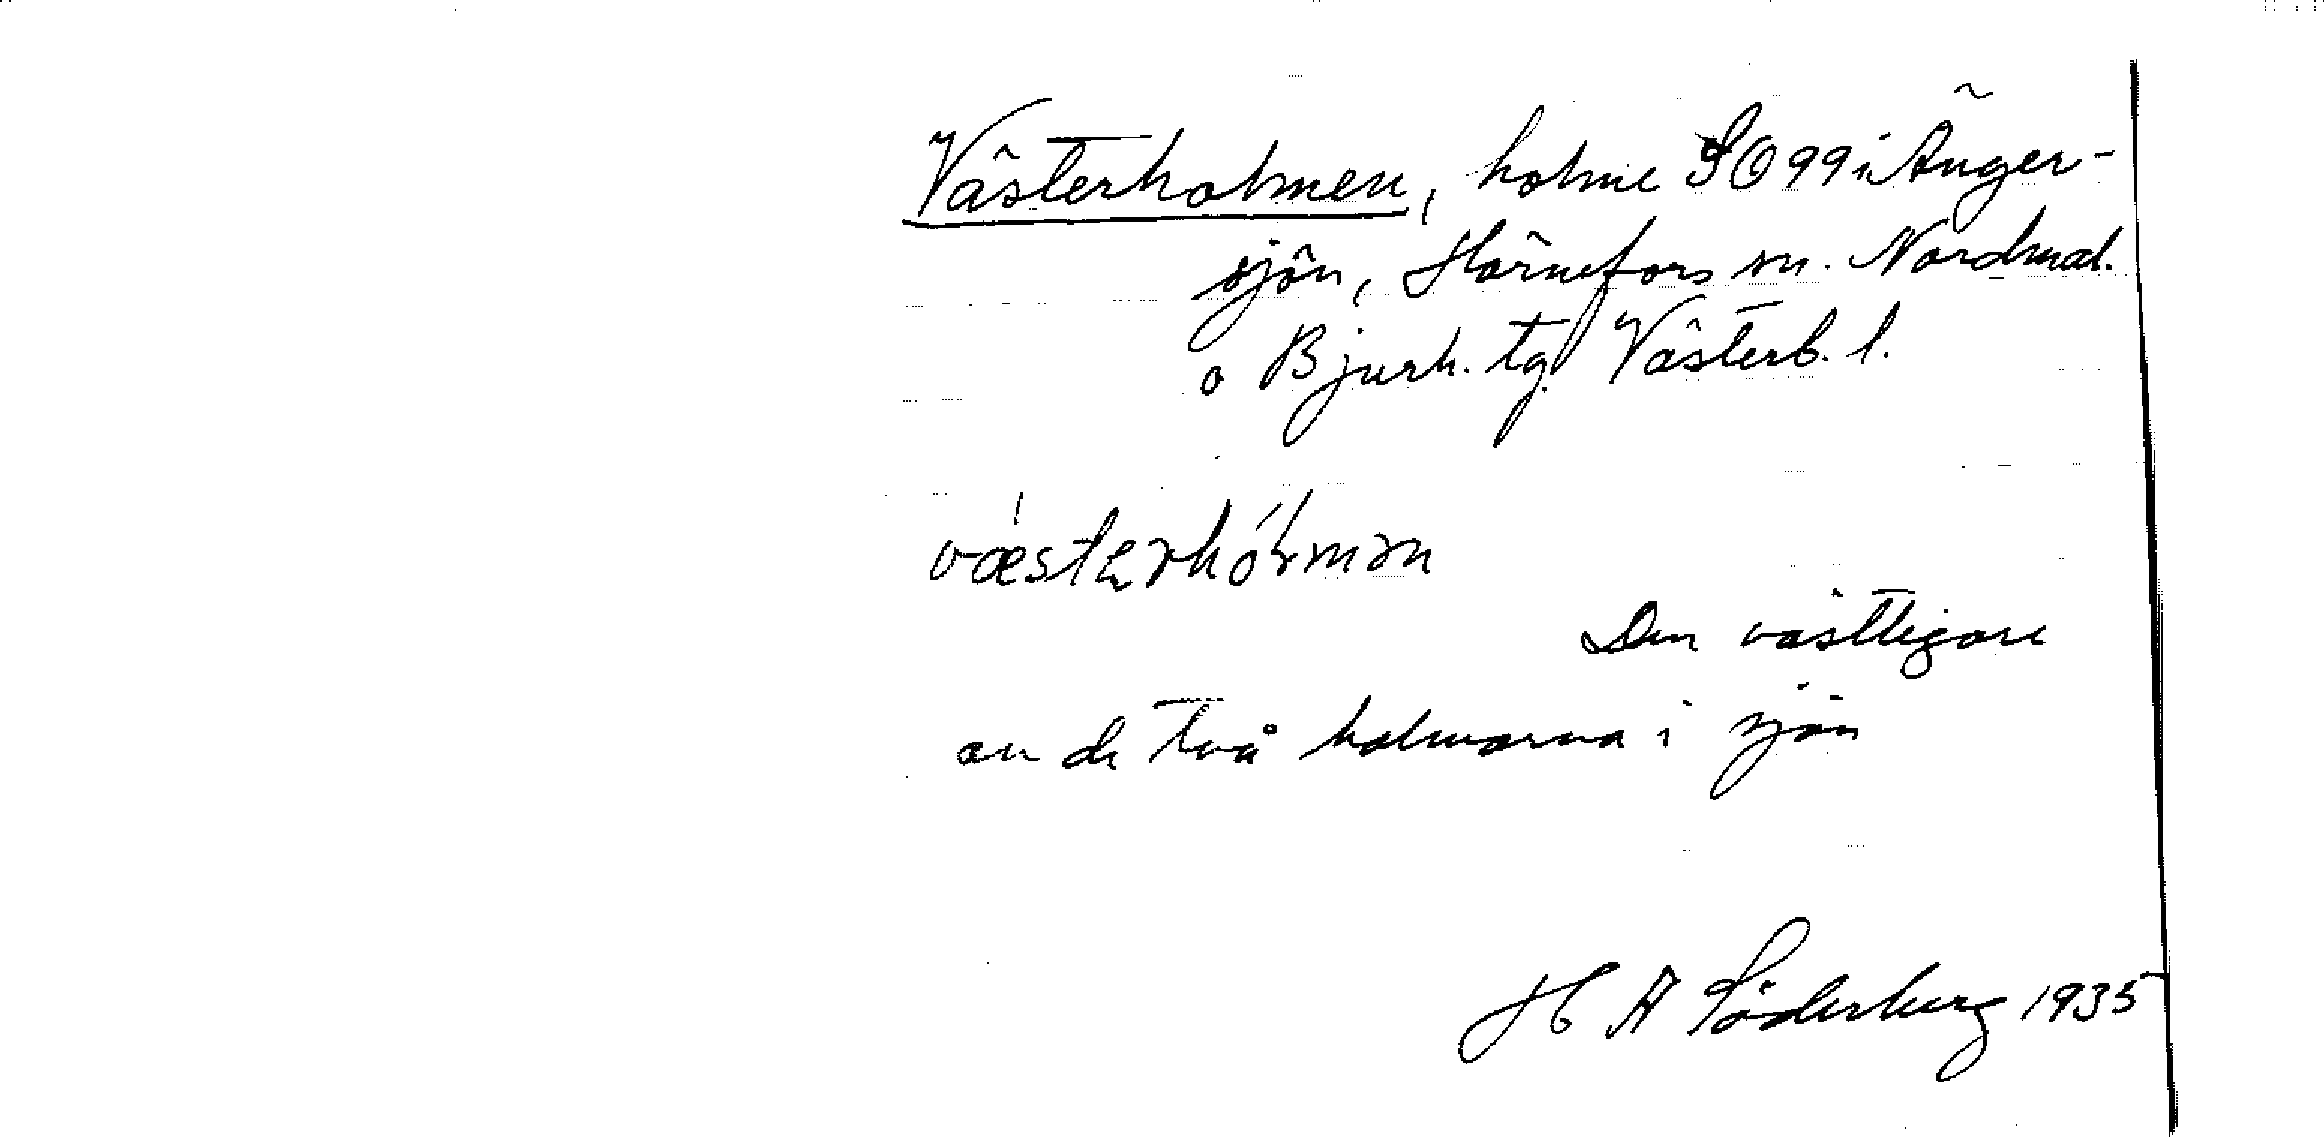 Västerholmen, holme SO 99 i Änger-
sjön, Hörnefors sn. Nordmal.
o Bjurh. tg. Västerb. l.
væstərhólmən
Den västligare
av de två holmarna i sjön
H A Söderberg 1935